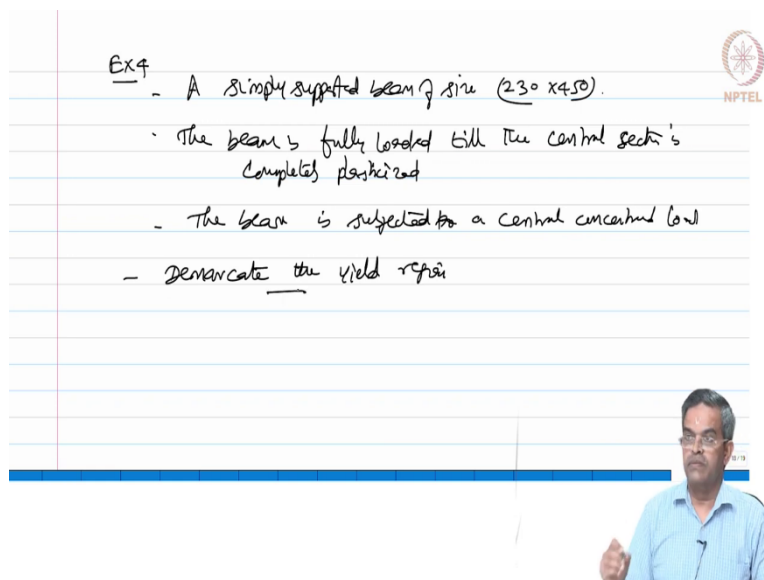 Ex4
- A simply supported beam of size (230 x 450).
NPTEL
- The beam is fully loaded till the central section is
completely plasticized
- The beam is subjected to a central concentrated load
- Demarcate the yield region